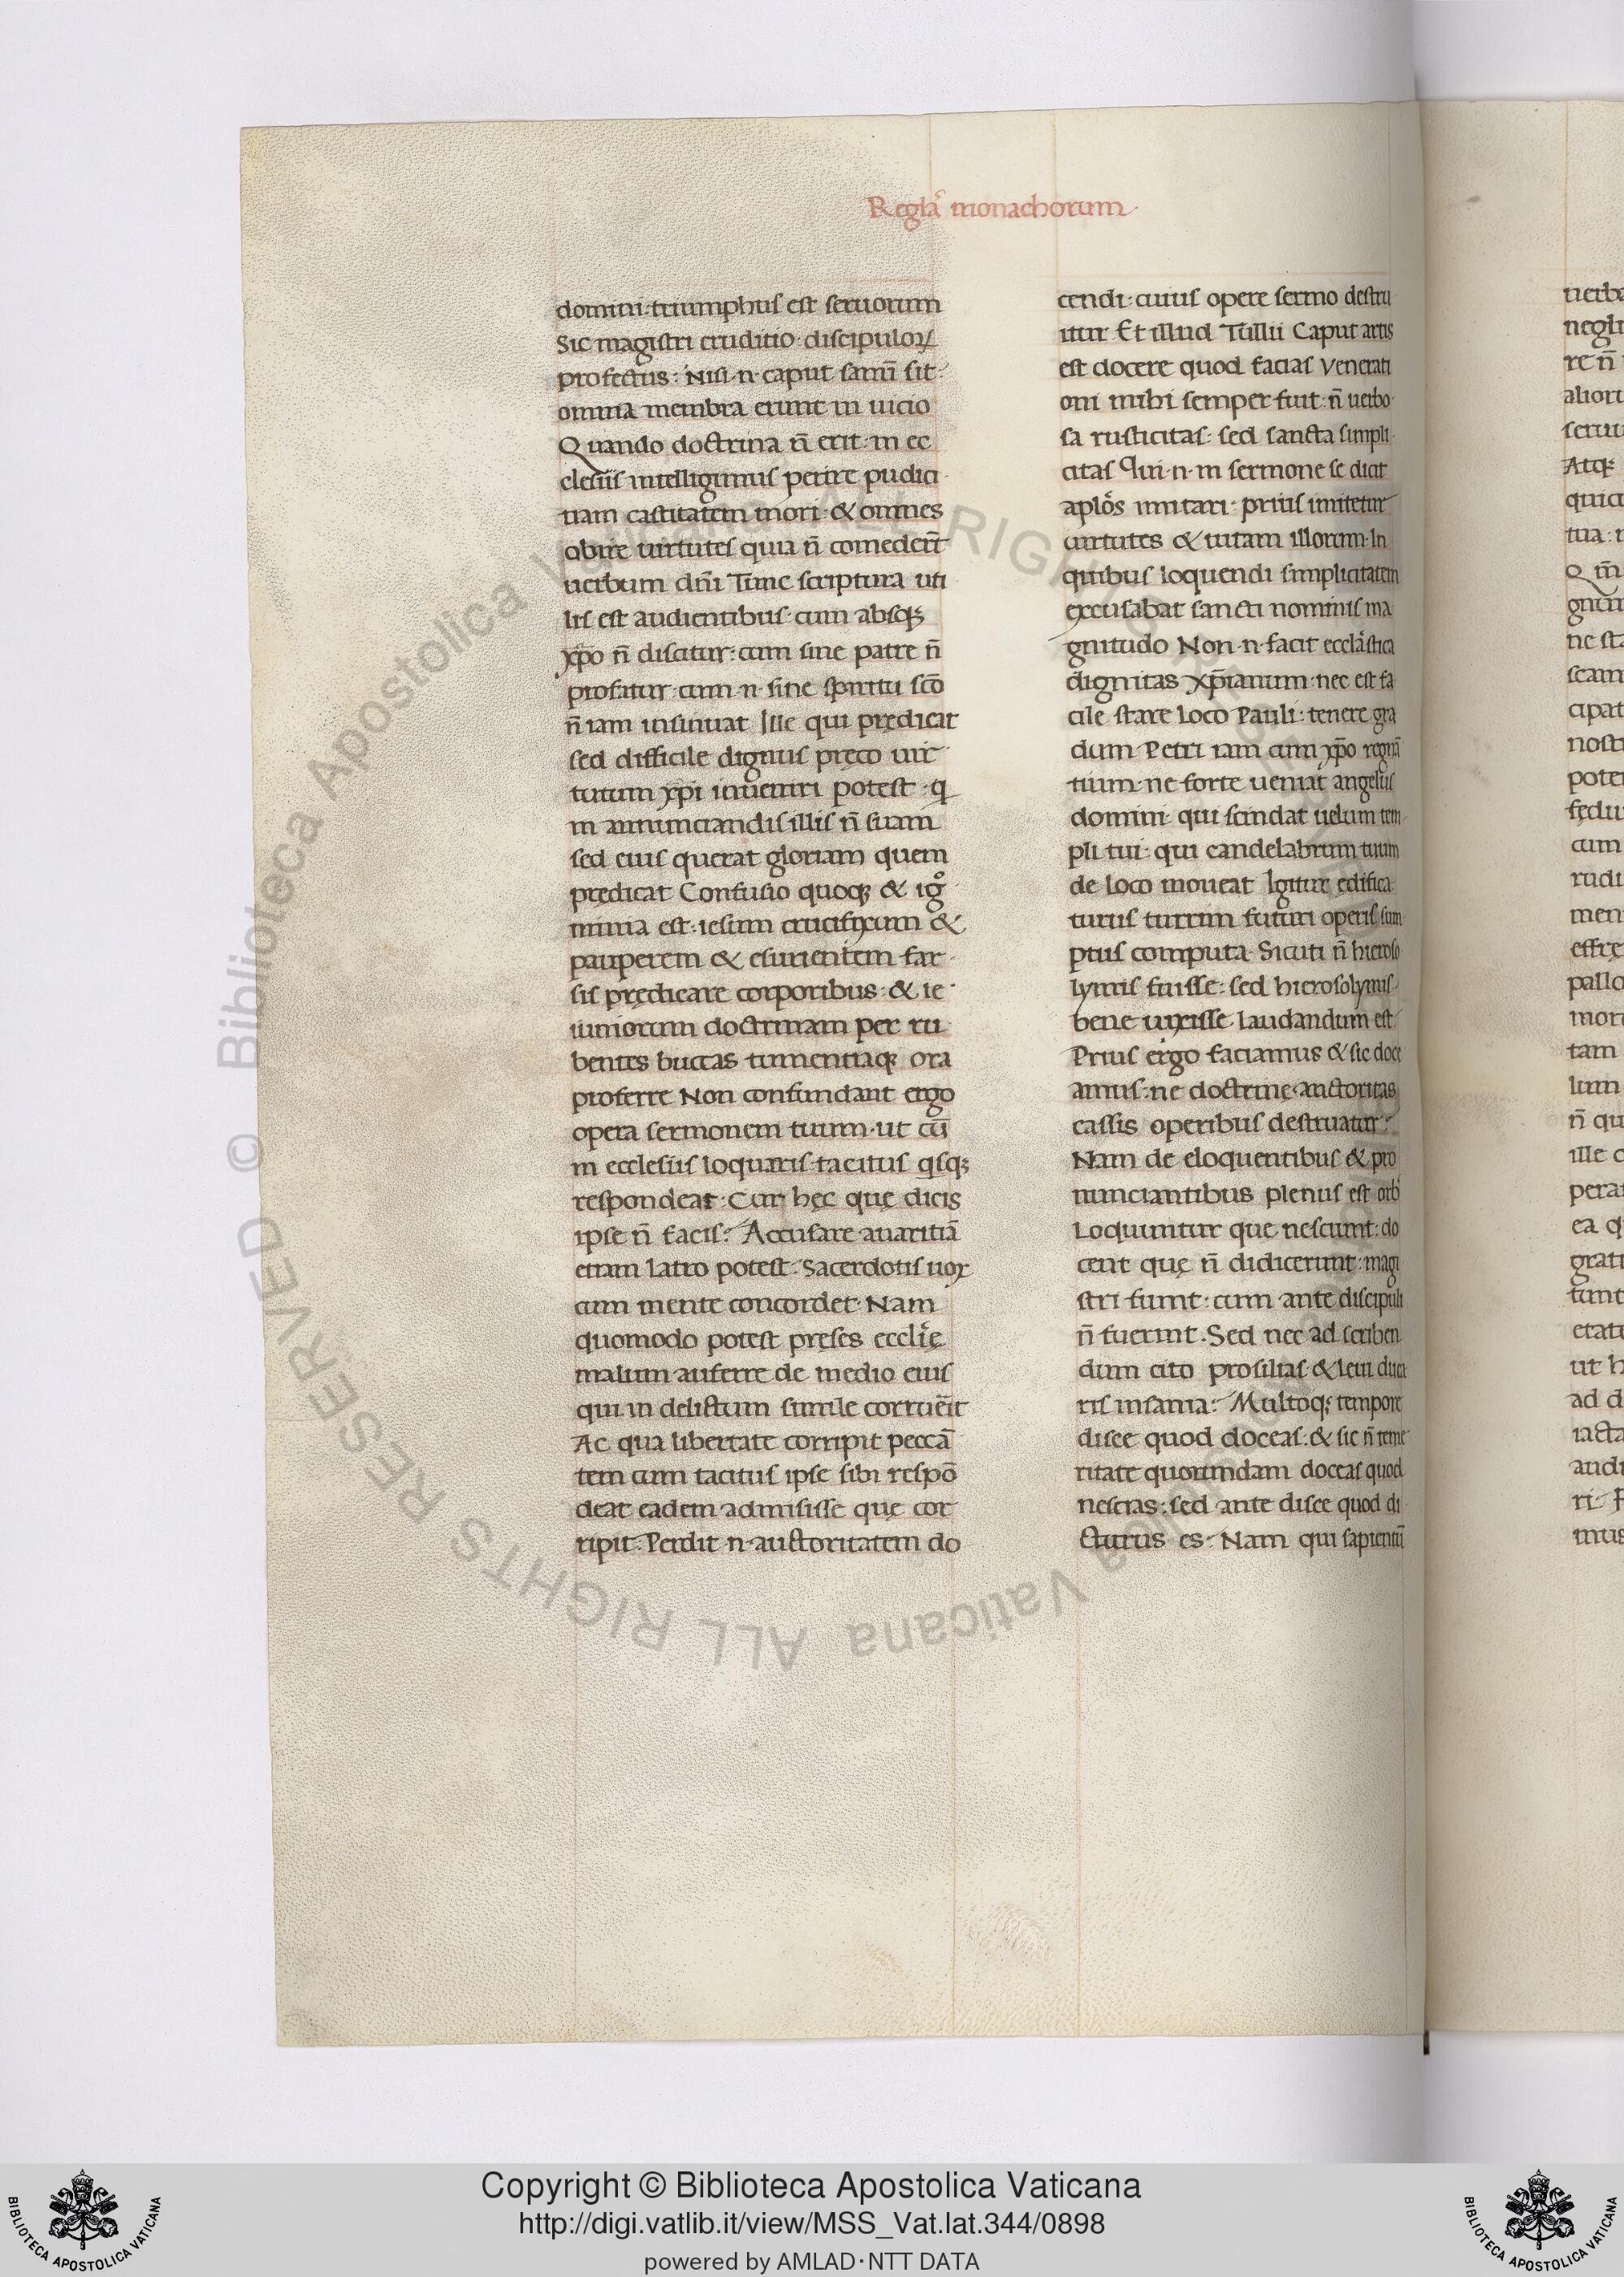 Regła monachorum
domini·triumphus est seruorum
Sic magistri eruditio·discipuloꝝ
profectus: Nisi·n·caput sanū sit·
omnia membra erunt in uicio
Quando doctrina n̄ erit·in ec
clesiis intelligimus perire pudici·
tiam castitatem mori·& omnes
obire uirtutes quia n̄ comederт̄
uerbum dn̄i Tunc scriptura uti
lis est audientibus·cum absqꝫ
xp̄o n̄ discitur:cum sine patre n̄
profatur·cum·n·sine spiritu sc̄o
n̄ iam insinuat Ille qui prędicat
sed difficile dignus pręco uir·
tutum xp̄i inueniri potest·q̇
in annunciandis illis n̄ suam
sed eius querat gloriam quem
prędicat Confusio quoqꝫ & igͦ·
minia est:iesum crucifixum &
pauperem & esurientem·far·
sis prędicare corporibus·& ie·
iuniorum doctrinam per ru
bentes buccas tumentiaqꝫ ora
proferre Non confundant ergo
opera sermonem tuum·ut cū
in ecclesiis loquaris·tacitus qisqꝫ
respondeat·Cur hęc quę dicis
ipse n̄ facis? Accusare auaritiā
etiam latro potest·Sacerdotis uox
cum mente concordet·Nam
quomodo potest pręses eccl̄ię
malum auferre de medio eius
qui in delictum simile corruēit
Ac qua libertate corripit peccā
tem cum tacitus ipse sibi respō
deat eadem admisisse quę cor
ripit·Perdit·n·auctoritatem do
cendi·cuius opere sermo destru
itur Et illud Tullii Caput artis
est docere quod facias Venerati
oni mihi semper fuit·n̄ uerbo·
sa rusticitas: sed sancta simpli·
citas Qui·n·in sermone se dicit
aplo̅s imitari·prius imitetur
uirtutes & uitam illorum·In
quibus loquendi simplicitatem
excusabat sancti nominis ma
gnitudo Non·n·facit eccl̄astica
dignitas xp̄ianum·nec est fa
cile stare loco Pauli:tenere gra
dum Petri iam cum xp̄o regnā
tium·ne forte ueniat angelus
domini·qui scindat uelum tem·
pli tui·qui candelabrum tuum
de loco moueat Igitur ędifica·
turus turrim futuri operis sum
ptus computa·Sicuti n̄ hieroso
lymis fuisse: sed hierosolymis·
bene uixisse·laudandum est
Prius ergo faciamus & sic doce
amus:ne doctrinę·auctoritas
cassis operibus destruatur·
Nam de eloquentibus & pro
nunciantibus plenus est orb'
Loquuntur quę nesciunt:do
cent quę n̄ didicerunt·magi
stri sunt·cum ante discipuli
n̄ fuerint·Sed nec ad scriben
dum cito prosilias & leui duca
ris insania: Multoqꝫ tempore
disce quod doceas:& sic n̄ teme
ritate quorumdam doceas quod
nescias:sed ante disce quod di·
cturus es·Nam qui sapientū
negli
re n̄
ne st
pote
cum
rudi
pallo
tam
n̄ qu
ille
ea q
ut h
ad d
mus
Copyright © Biblioteca Apostolica Vaticana
http://digi.vatlib.it/view/MSS_Vat.lat.344/0898
powered by AMLAD·NTT DATA
BIBLIOTECA APOSTOLICA VATICANA
BIBLIOTECA APOSTOLICA VATICANA
© Biblioteca Apostolica Vaticana ALL RIGHTS RESERVED
© Biblioteca Apostolica Vaticana ALL RIGHTS RESERVED